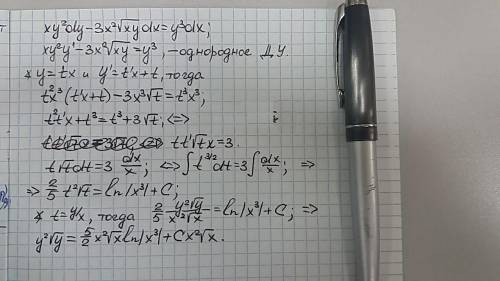 xy²dy-3x²√xy dx=y³dx;
xy²y'-3x²√xy=y³, -однородное Д.У.
* y=tx и y'=t'x+t, тогда
t²x³(t'x+t)-3x³√t=t³x³;
t²t'x+t³=t³+3√t; <=>
tt'√t x=3.
t√t dt=3 dx/x; <=> ∫t^{3/2}dt=3∫dx/x; =>
=> 2/5 t²√t=ln|x³|+C;
* t=y/x, тогда 2/5 y²√y/x²√x=ln|x³|+C; =>
y²√y=5/2 x²√x ln|x³|+Cx²√x.